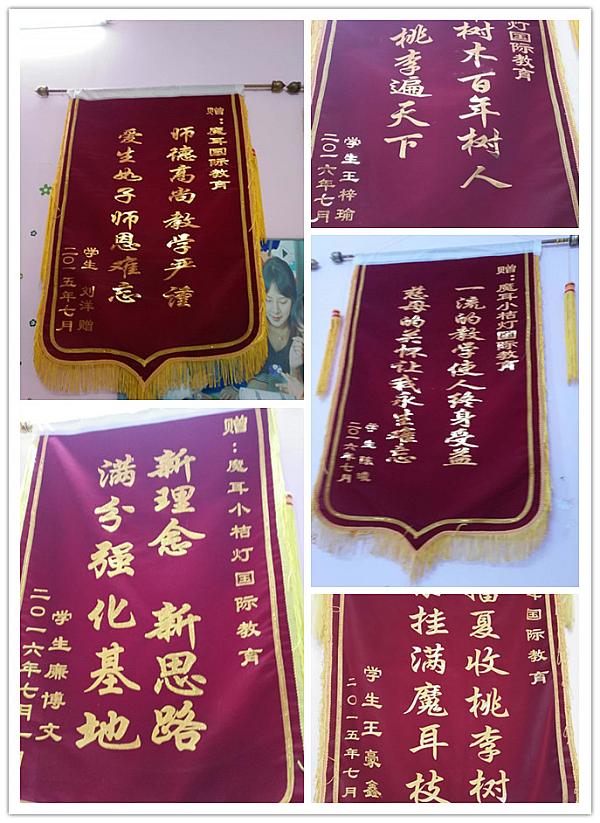 赠：魔耳国际教育
师德高尚教学严谨
爱生如子师恩难忘
学生 刘洋 赠
二〇一五年七月
灯国际教育
树木百年树人
桃李遍天下
学生王梓瑜
二〇一六年七月
赠：魔耳小桔灯国际教育
一流的教学使人终身受益
慈母的关怀让我永生难忘
学生
二〇一六年七月
赠：魔耳小桔灯国际教育
新理念 新思路
满分强化基地
学生廉博文
二〇一六年七月
国际教育
夏收桃李树
挂满魔耳枝
学生王豪鑫
二〇一五年七月